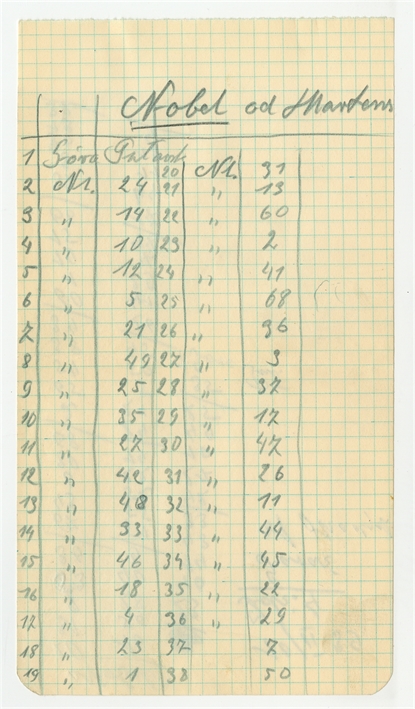 Nobel od Martens
1 Patark
2 Nr. 24 20 Nr. 31
3 " 14 21 " 13
4 " 10 22 " 60
5 " 12 23 " 2
6 " 5 24 " 41
7 " 21 25 " 68
8 " 49 26 " 36
9 " 25 27 " 3
10 " 35 28 " 37
11 " 27 29 " 17
12 " 42 30 " 47
13 " 48 31 " 26
14 " 33 32 " 11
15 " 46 33 " 44
16 " 18 34 " 45
17 " 4 35 " 22
18 " 23 36 " 29
19 " 1 37 7
38 50